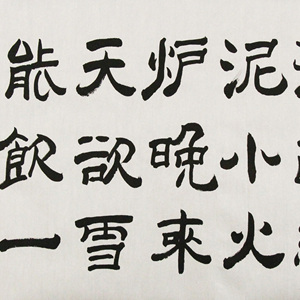 泥小火
炉晚来
天欲雪
能飲一